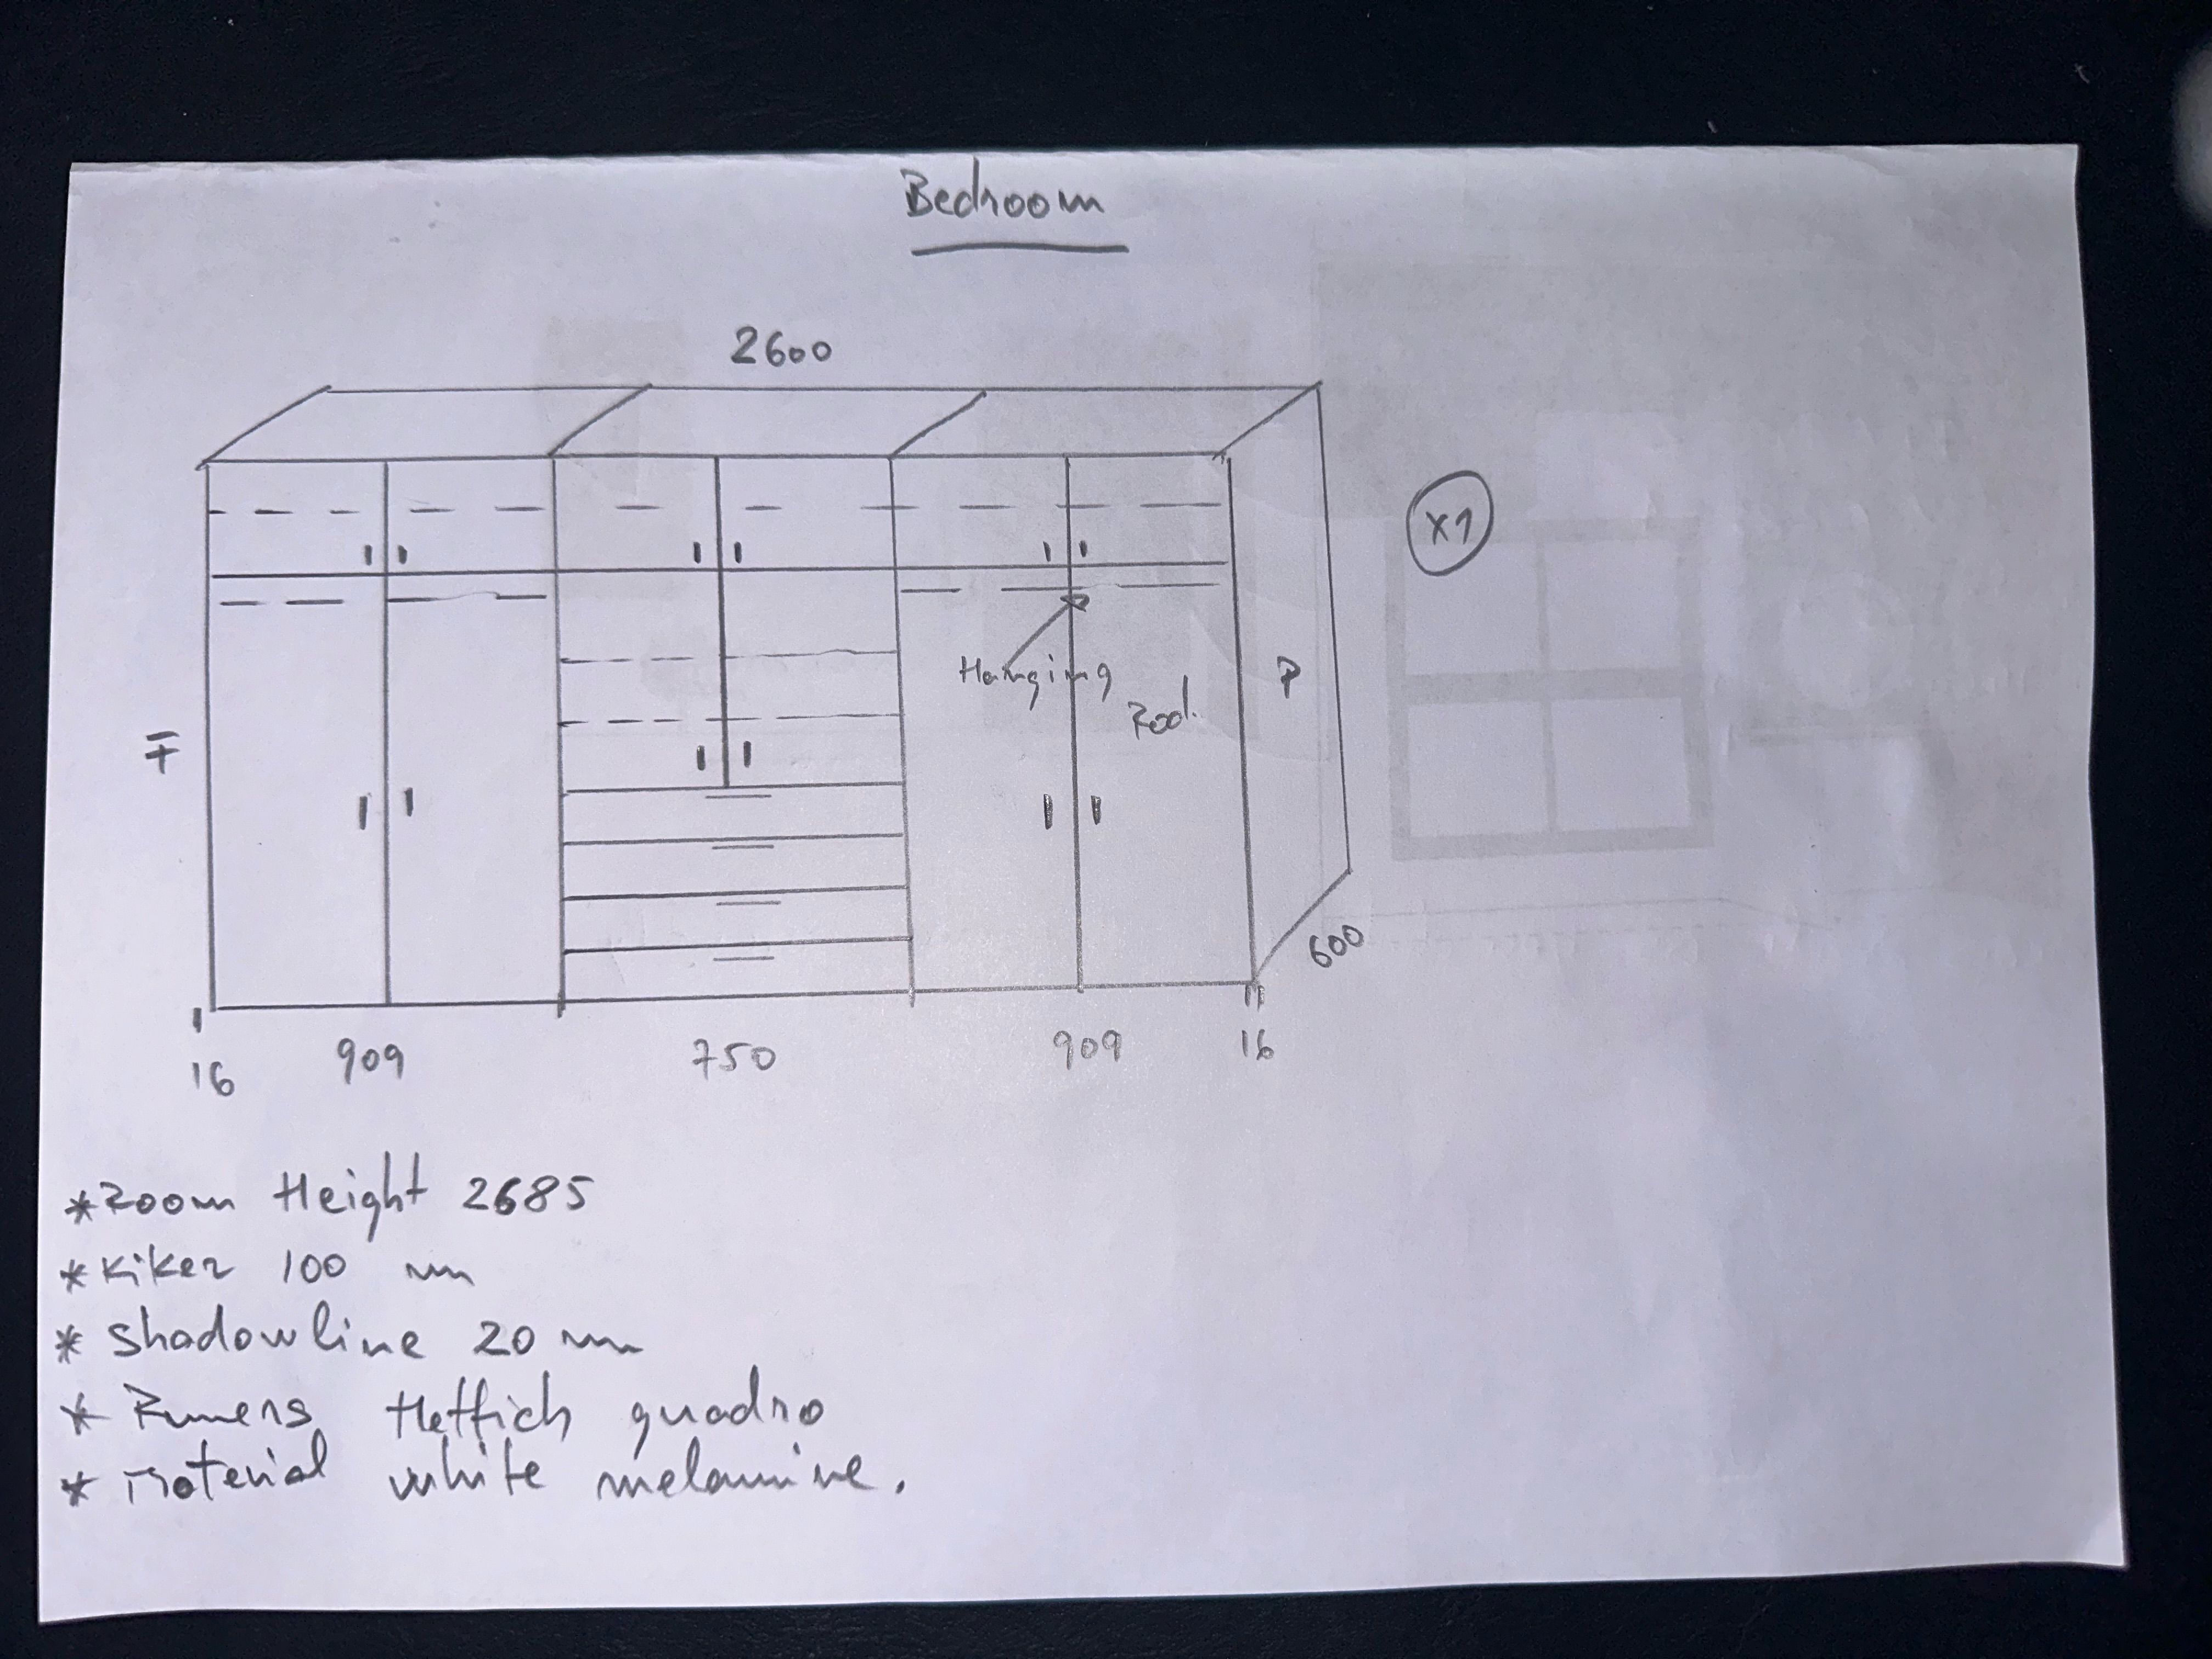 Bedroom
2600
x1
Hanging
Rod.
P
F
600
16 909 750 909 16
* Room Height 2685
* Kiker 100 mm
* Shadowline 20 mm
* Runners Hettich quadro
* Material white melamine.